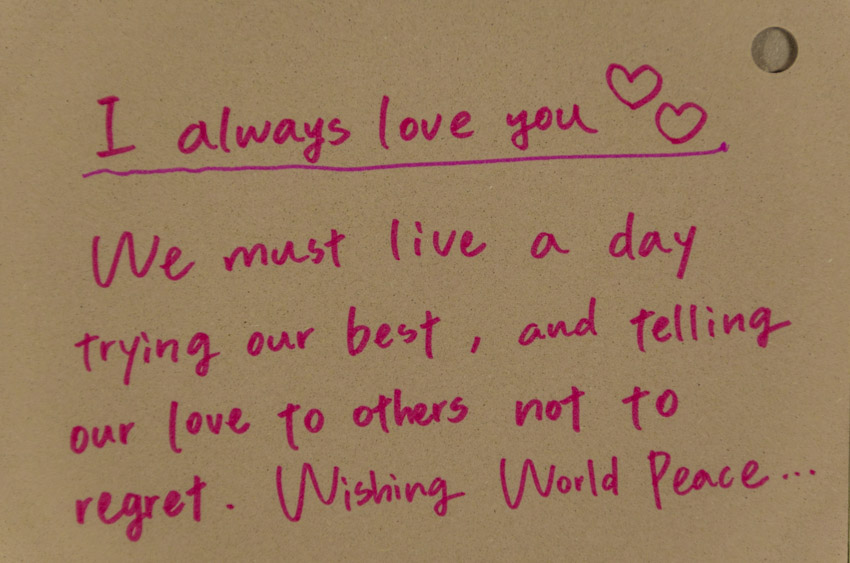 I always love you ♡♡
We must live a day
trying our best, and telling
our love to others not to
regret. Wishing World Peace...